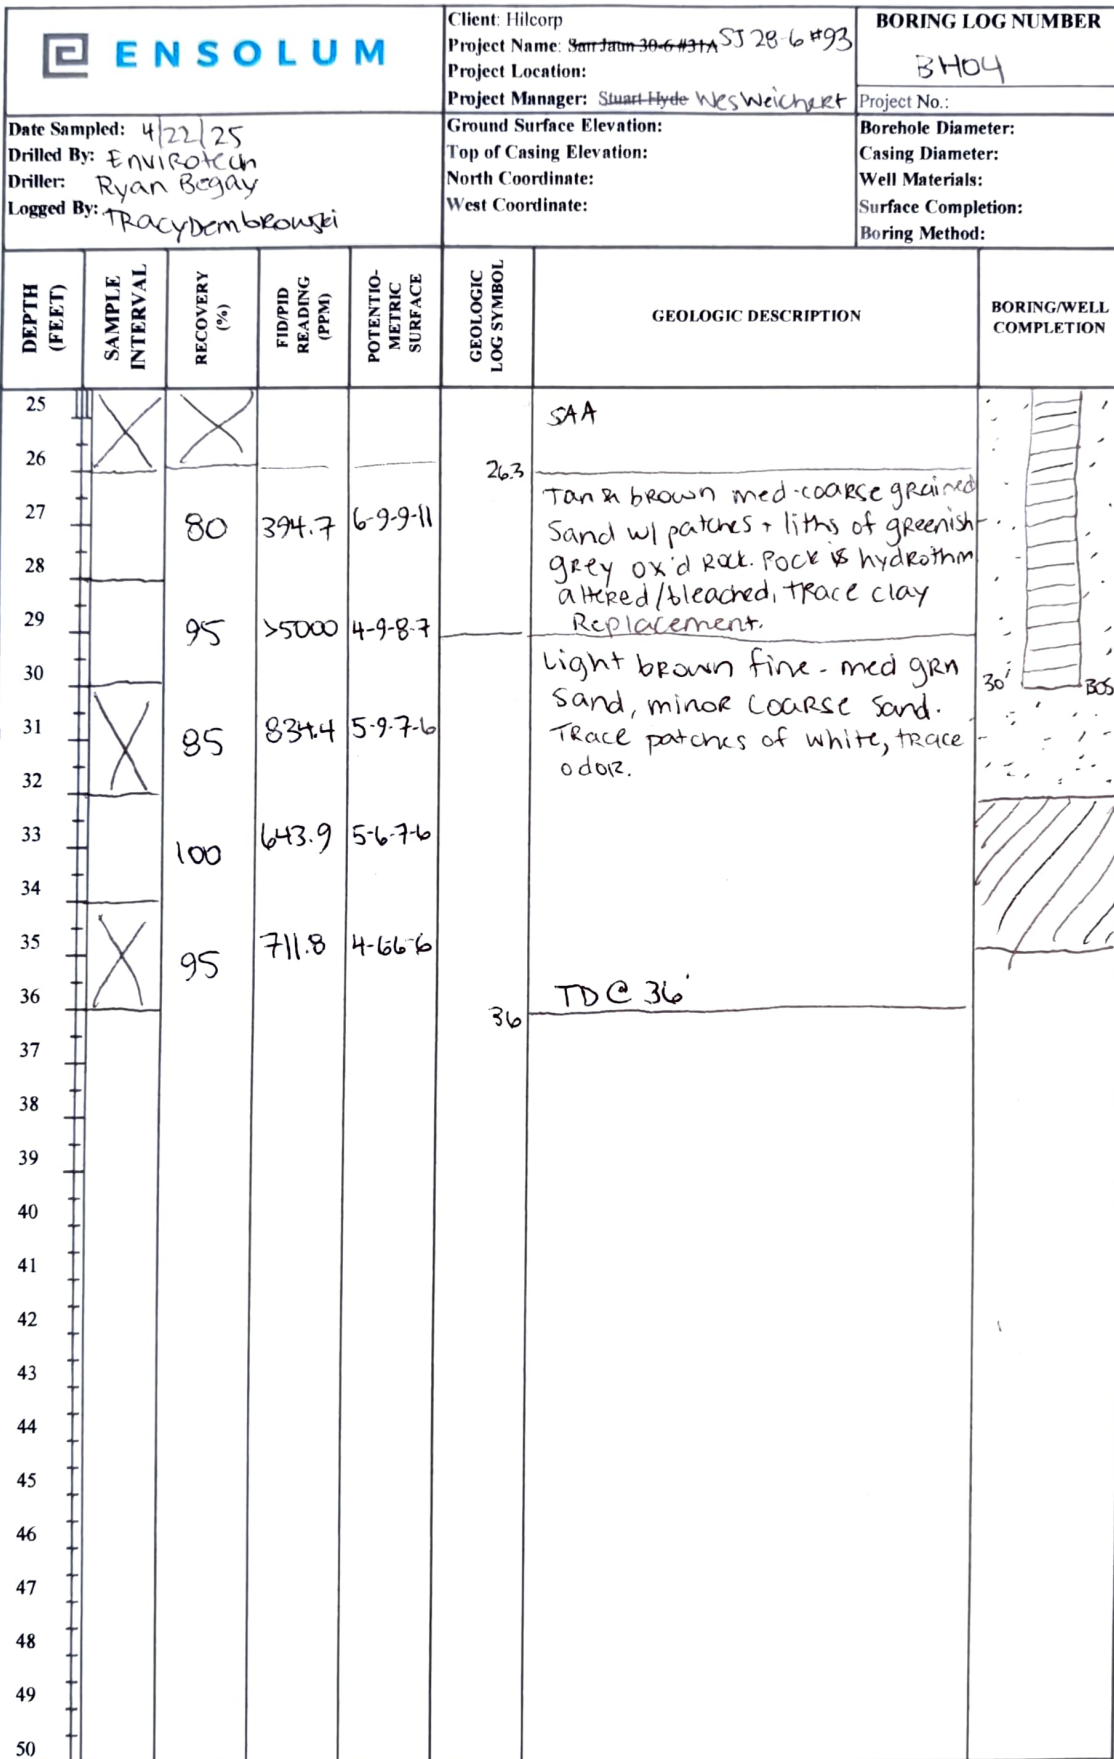 ENSOLUM
Client: Hilcorp
Project Name: San Jaun 30-6 #31A SJ 28-6 #93
Project Location:
Project Manager: Stuart Hyde Wes Weichert
BORING LOG NUMBER
BH04
Project No.:
Date Sampled: 4/22/25
Drilled By: Envirotech
Driller: Ryan Begay
Logged By: Tracy Dembrowski
Ground Surface Elevation:
Top of Casing Elevation:
North Coordinate:
West Coordinate:
Borehole Diameter:
Casing Diameter:
Well Materials:
Surface Completion:
Boring Method:
DEPTH (FEET)
SAMPLE INTERVAL
RECOVERY (%)
FID/PID READING (PPM)
POTENTIO-METRIC SURFACE
GEOLOGIC LOG SYMBOL
GEOLOGIC DESCRIPTION
BORING/WELL COMPLETION
25
SAA
26
26.3
Tan & brown med-coarse grained
27 80 394.7 6-9-9-11
Sand w/ patches + liths of greenish
grey ox'd Rock. Rock is hydrothm
28
altered/bleached, trace clay
29 95 >5000 4-9-8-7
Replacement.
Light brown fine-med grn
30
30' BOS
sand, minor coarse sand.
31 85 834.4 5-9-7-6
Trace patches of white, trace
32
odor.
33 100 643.9 5-6-7-6
34
35 95 711.8 4-66-6
36
TD @ 36'
36
37
38
39
40
41
42
43
44
45
46
47
48
49
50